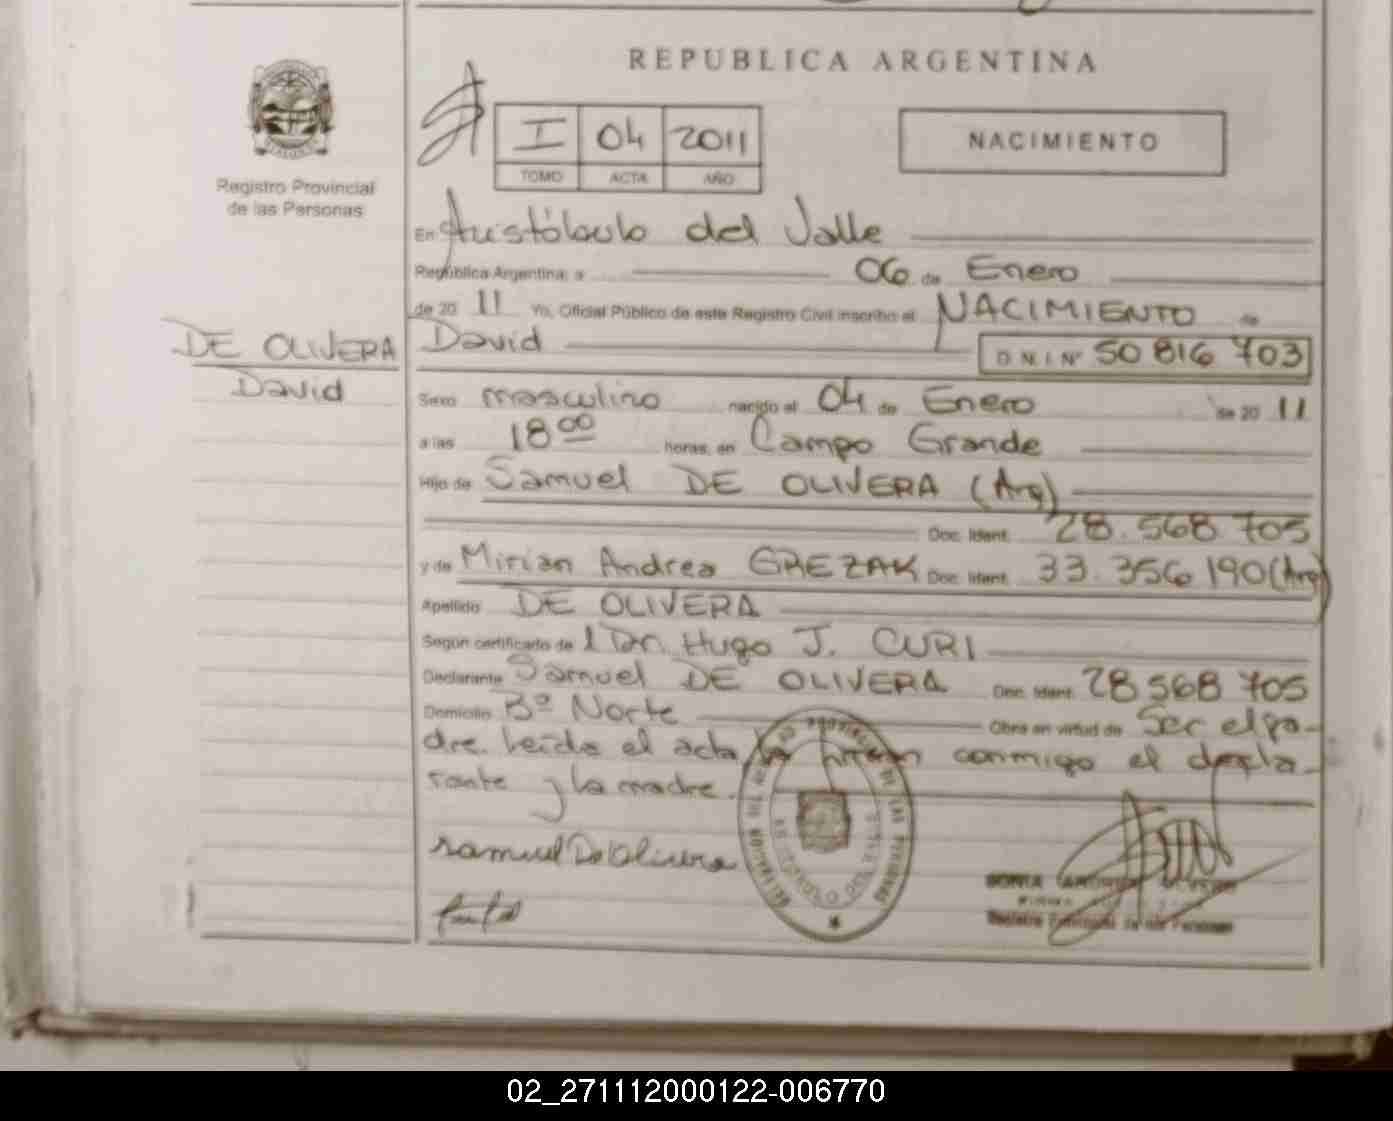 REPUBLICA ARGENTINA
I 04 2011
TOMO ACTA AÑO
NACIMIENTO
Registro Provincial
de las Personas
En Aristóbulo del Valle
República Argentina, a 06 de Enero
de 20 11 Yo, Oficial Público de este Registro Civil inscribo el NACIMIENTO de
DE OLIVERA
David
David D N I Nº 50 816 703
Sexo masculino nacido el 04 de Enero de 20 11
a las 18 00 horas, en Campo Grande
Hijo de Samuel DE OLIVERA (Arg)
Doc. Ident. 28.568.705
y de Mirian Andrea GREZAK Doc. Ident. 33.356 190 (Arg)
Apellido DE OLIVERA
Según certificado de l Dr. Hugo J. CURI
Declarante Samuel DE OLIVERA Doc. Ident. 28 568 705
Domicilio Bº Norte Obra en virtud de Ser el pa-
dre. Leida el acta la firman conmigo el decla-
rante y la madre.
Samuel De Olivera
Registro Provincial de las Personas
02_271112000122-006770